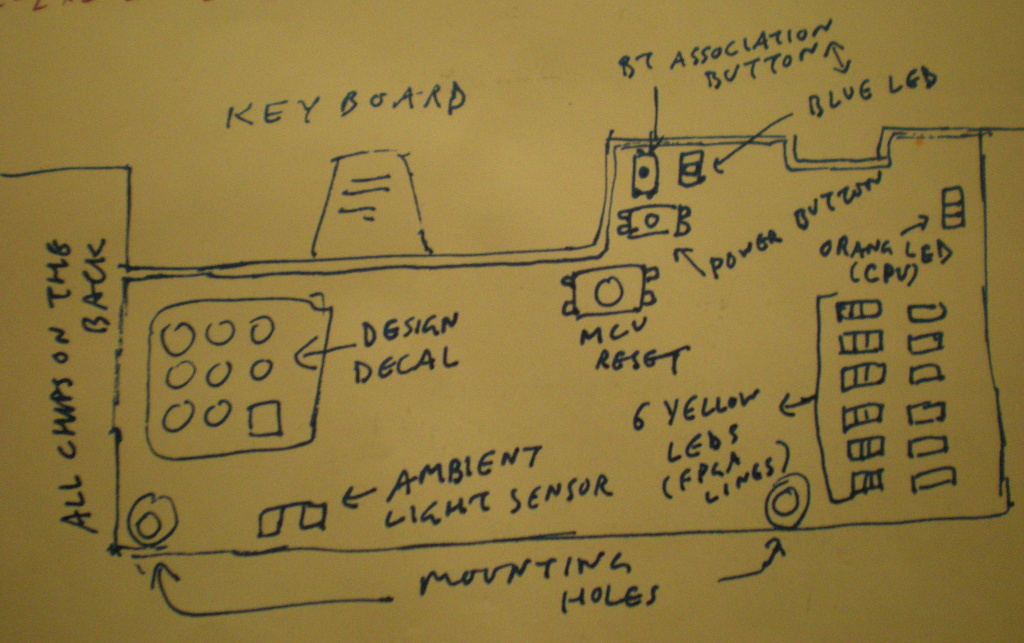 BT ASSOCIATION
BUTTON
BLUE LED
KEYBOARD
POWER BUTTON
ORANG LED
(CPU)
ALL CHIPS ON THE
BACK
DESIGN
DECAL
MCU
RESET
6 YELLOW
LEDS
(FPGA
LINGS)
AMBIENT
LIGHT SENSOR
MOUNTING
HOLES